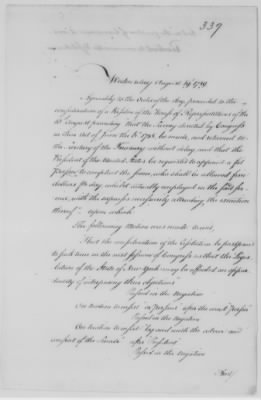 339
Wednesday August 19th 1789
Agreeably to the Order of the day, proceeded to the
consideration of a Resolve of the House of Representatives of the
August providing that the Survey directed by Congress
in their Act of June the 6th 1788 be made, and returned to
the Secretary of the Treasury without delay and that the
President of the United States be requested to appoint a fit
Person to compleat the same, who shall be allowed five
dollars per day whilst actually employed in the said ser
vice, with the expences necessarily attending the execution
thereof — upon which
The following Motions were made to wit,
That the consideration of the Resolution be postponed
to such time in the next Session of Congress as that the Legis
lature of the State of New York may be afforded an oppor
tunity of interposing their objections
Passed in the Negative
On motion to insert in "Persons" after the word "Person"
Passed in the Negative
On motion to insert "by and with the advice and
consent of the Senate" after President
Passed in the Negative